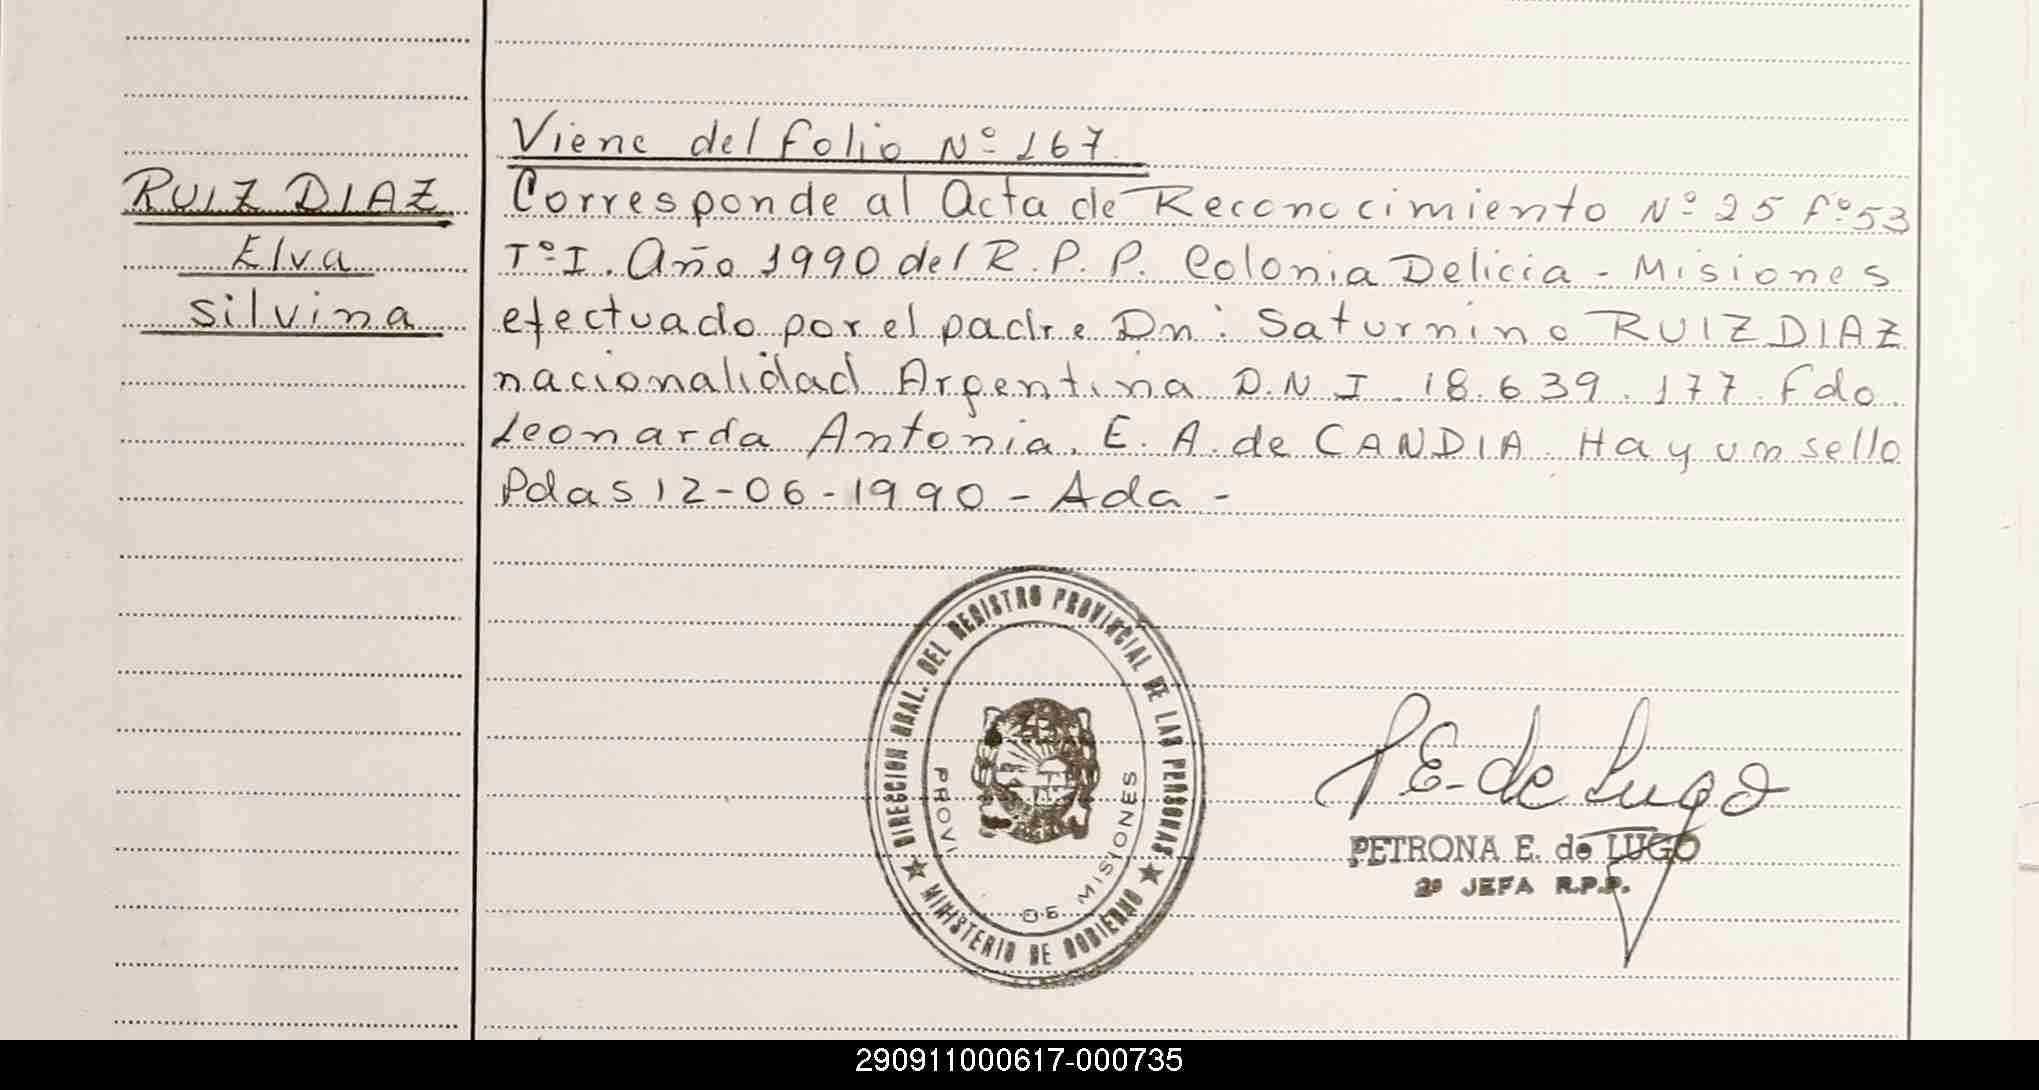 Viene del folio Nº 167
RUIZ DIAZ
Elva
Silvina
Corresponde al Acta de Reconocimiento Nº 25 fº 53
Tº I. Año 1990 del R. P. P. Colonia Delicia - Misiones
efectuado por el padre Dn: Saturnino RUIZ DIAZ
nacionalidad Argentina D.N I. 18.639.177. Fdo.
Leonarda Antonia. E. A. de CANDIA. Hay un sello
Pdas 12-06-1990 - Ada -
DIRECCION GRAL. DEL REGISTRO PROVINCIAL DE LAS PERSONAS
MINISTERIO DE GOBIERNO
PROVI
DE MISIONES
P E. de Lugo
PETRONA E. de LUGO
2º JEFA R.P.P.
290911000617-000735